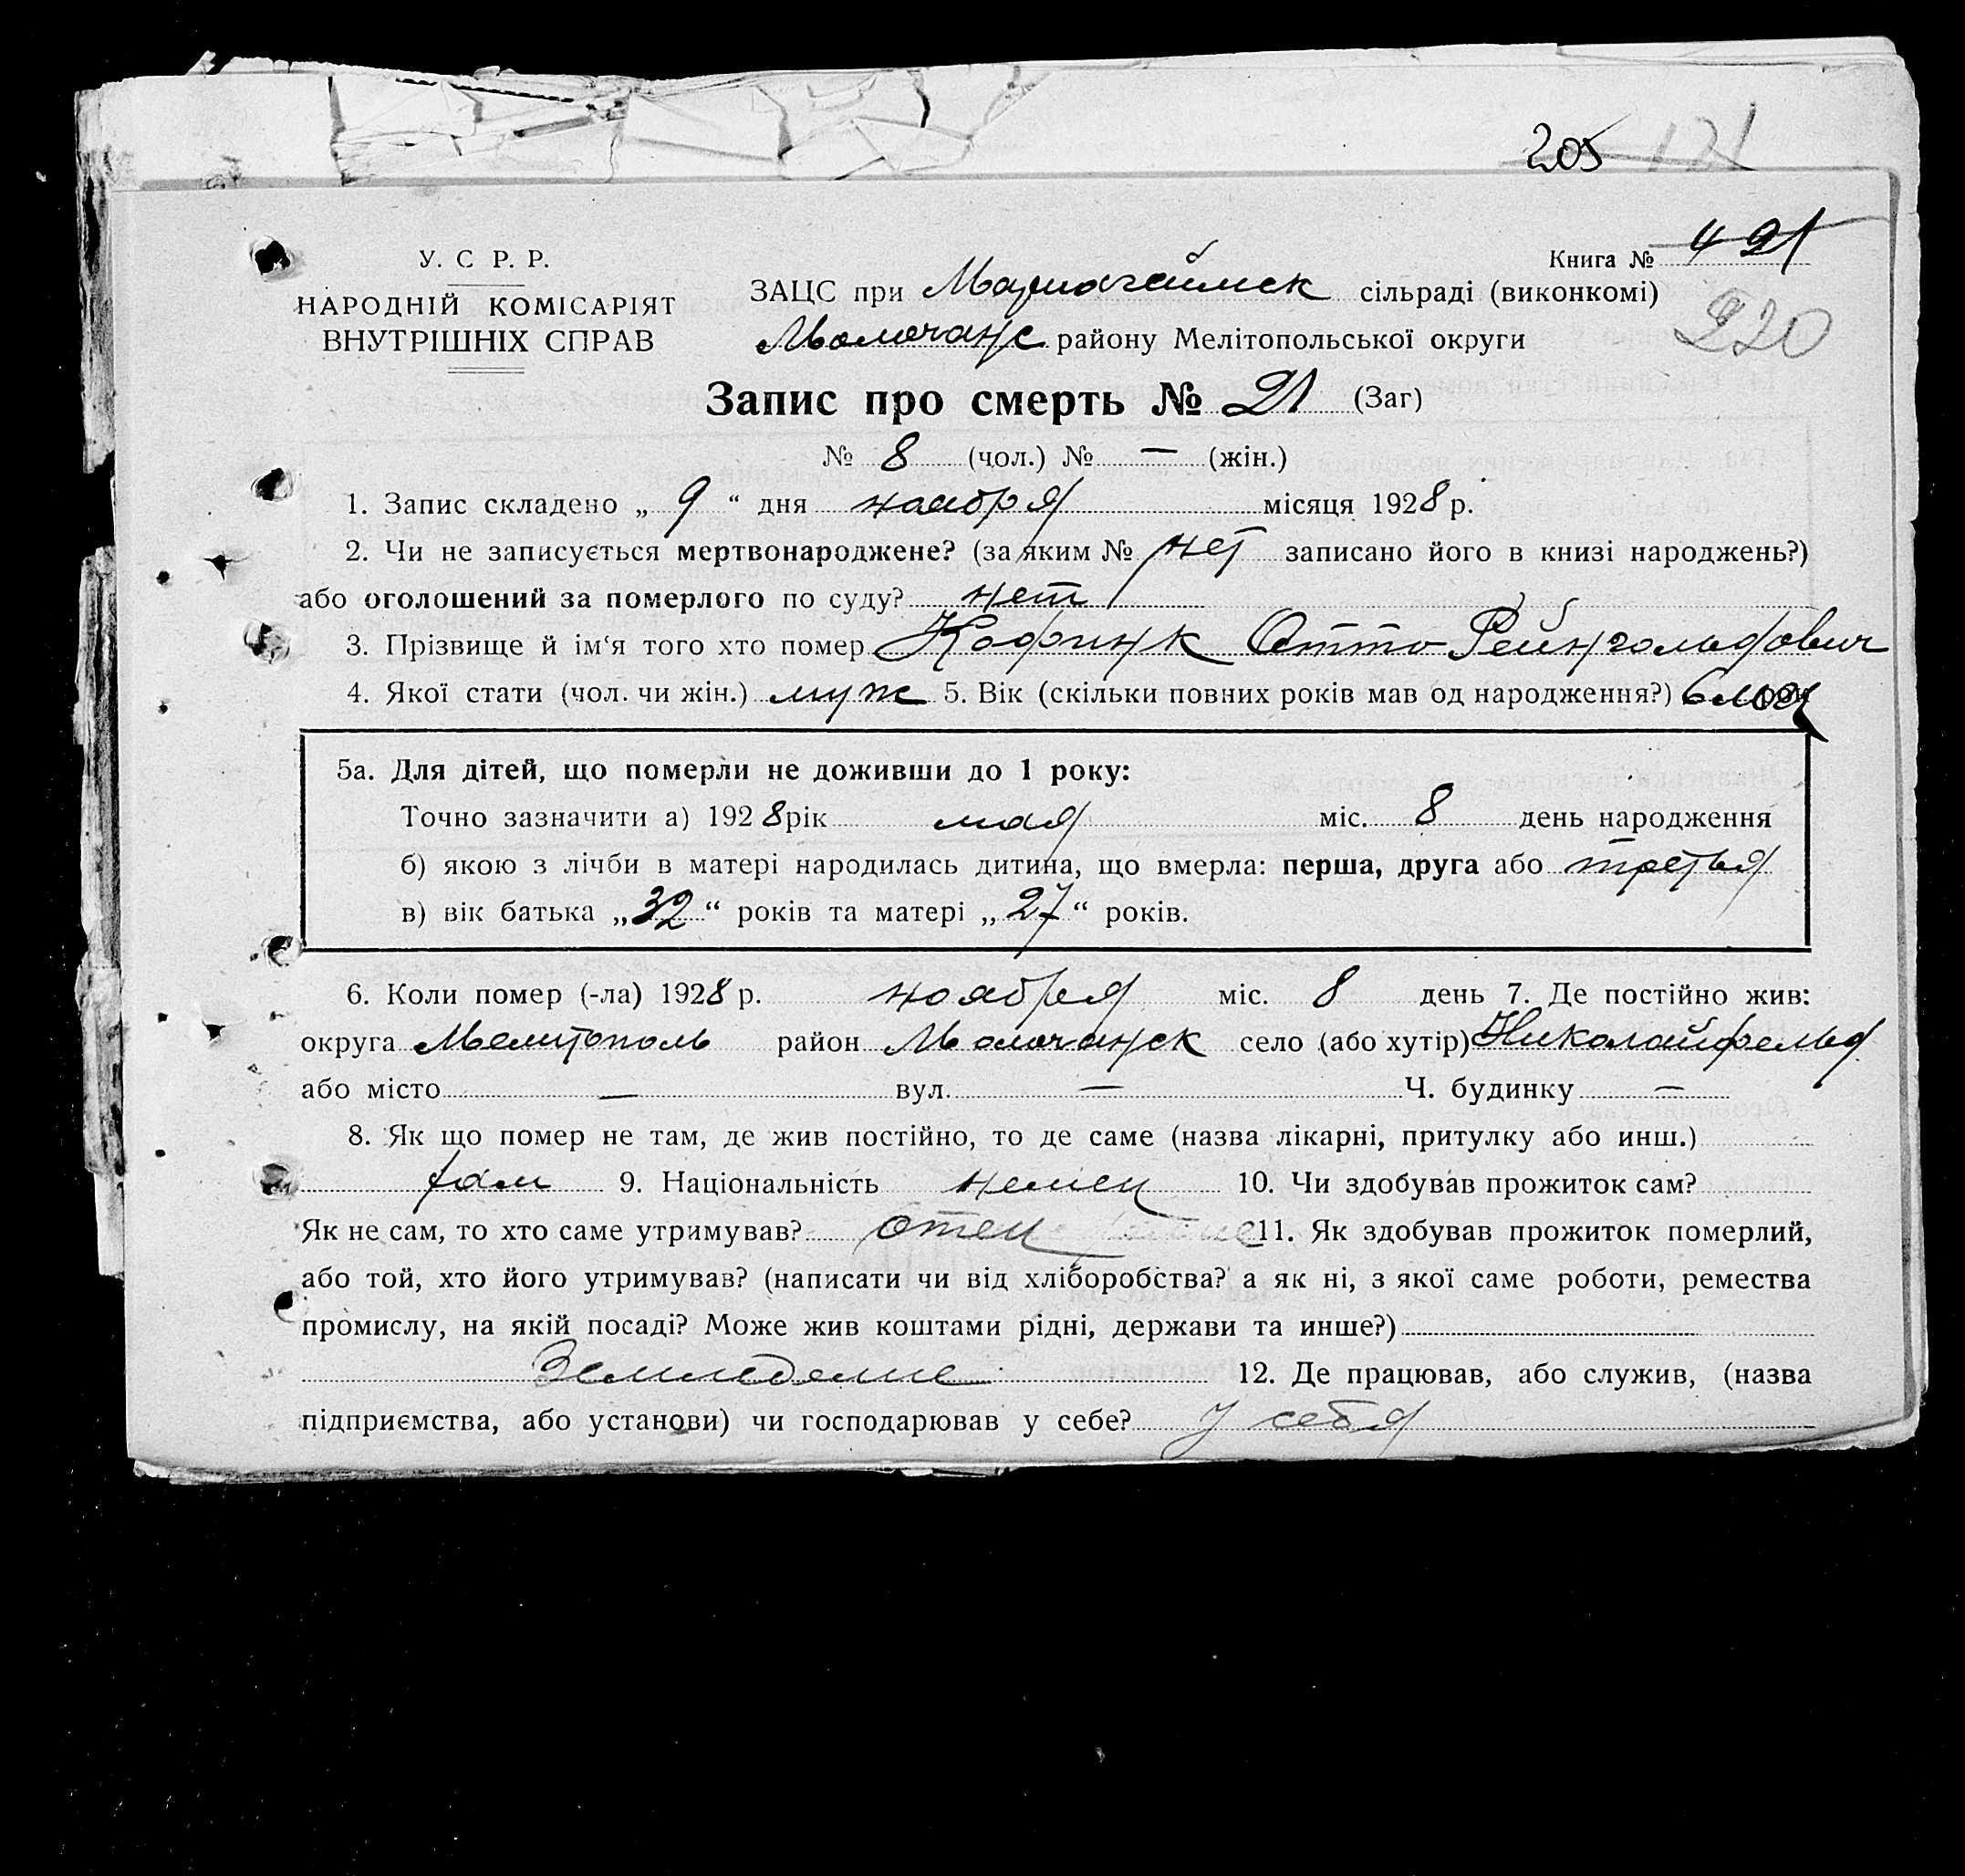 205 121
У. С Р. Р.
НАРОДНІЙ КОМІСАРІЯТ
ВНУТРІШНІХ СПРАВ
Книга № 4 21
220
ЗАЦС при сільраді (виконкомі)
Молочанс району Мелітопольської округи
Запис про смерть № 21 (Заг)
№ 8 (чол.) № — (жін.)
1. Запис складено „ 9 “ дня ноября місяця 1928 р.
2. Чи не записується мертвонароджене? (за яким № нет записано його в книзі народжень?)
або оголошений за померлого по суду? нет
3. Прізвище й ім‘я того хто помер Кофинк Отто Рейнгольдович
4. Якої стати (чол. чи жін.) муж 5. Вік (скільки повних років мав од народження?) 6 мец
5а. Для дітей, що померли не доживши до 1 року:
Точно зазначити а) 1928 рік мая міс. 8 день народження
б) якою з лічби в матері народилась дитина, що вмерла: перша, друга або третья
в) вік батька „32“ років та матері „27“ років.
6. Коли помер (-ла) 1928 р. ноября міс. 8 день 7. Де постійно жив:
округа Мелитополь район Молочанск село (або хутір) Николайфельд
або місто — вул. — Ч. будинку —
8. Як що помер не там, де жив постійно, то де саме (назва лікарні, притулку або инш.)
там 9. Національність немец 10. Чи здобував прожиток сам?
Як не сам, то хто саме утримував? отец 11. Як здобував прожиток померлий,
або той, хто його утримував? (написати чи від хліборобства? а як ні, з якої саме роботи, ремества
промислу, на якій посаді? Може жив коштами рідні, держави та инше?)
Земледелие 12. Де працював, або служив, (назва
підприємства, або установи) чи господарював у себе? у себя